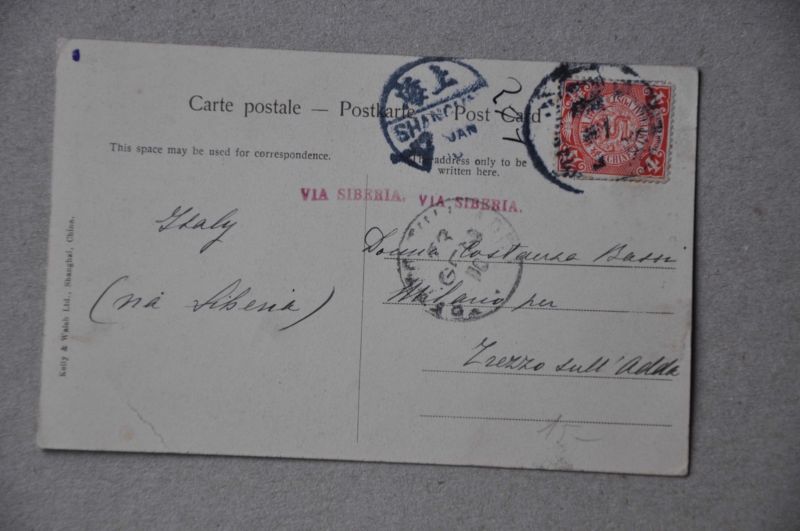 Carte postale — Postkarte — Post Card
上海
SHANGHAI
JAN
This space may be used for correspondence.
The address only to be
written here.
VIA SIBERIA. VIA SIBERIA.
Italy
(via Siberia)
Donna Costanza Bassi
Milano per
Trezzo sull'Adda
15-
Kelly & Walsh Ltd., Shanghai, China.